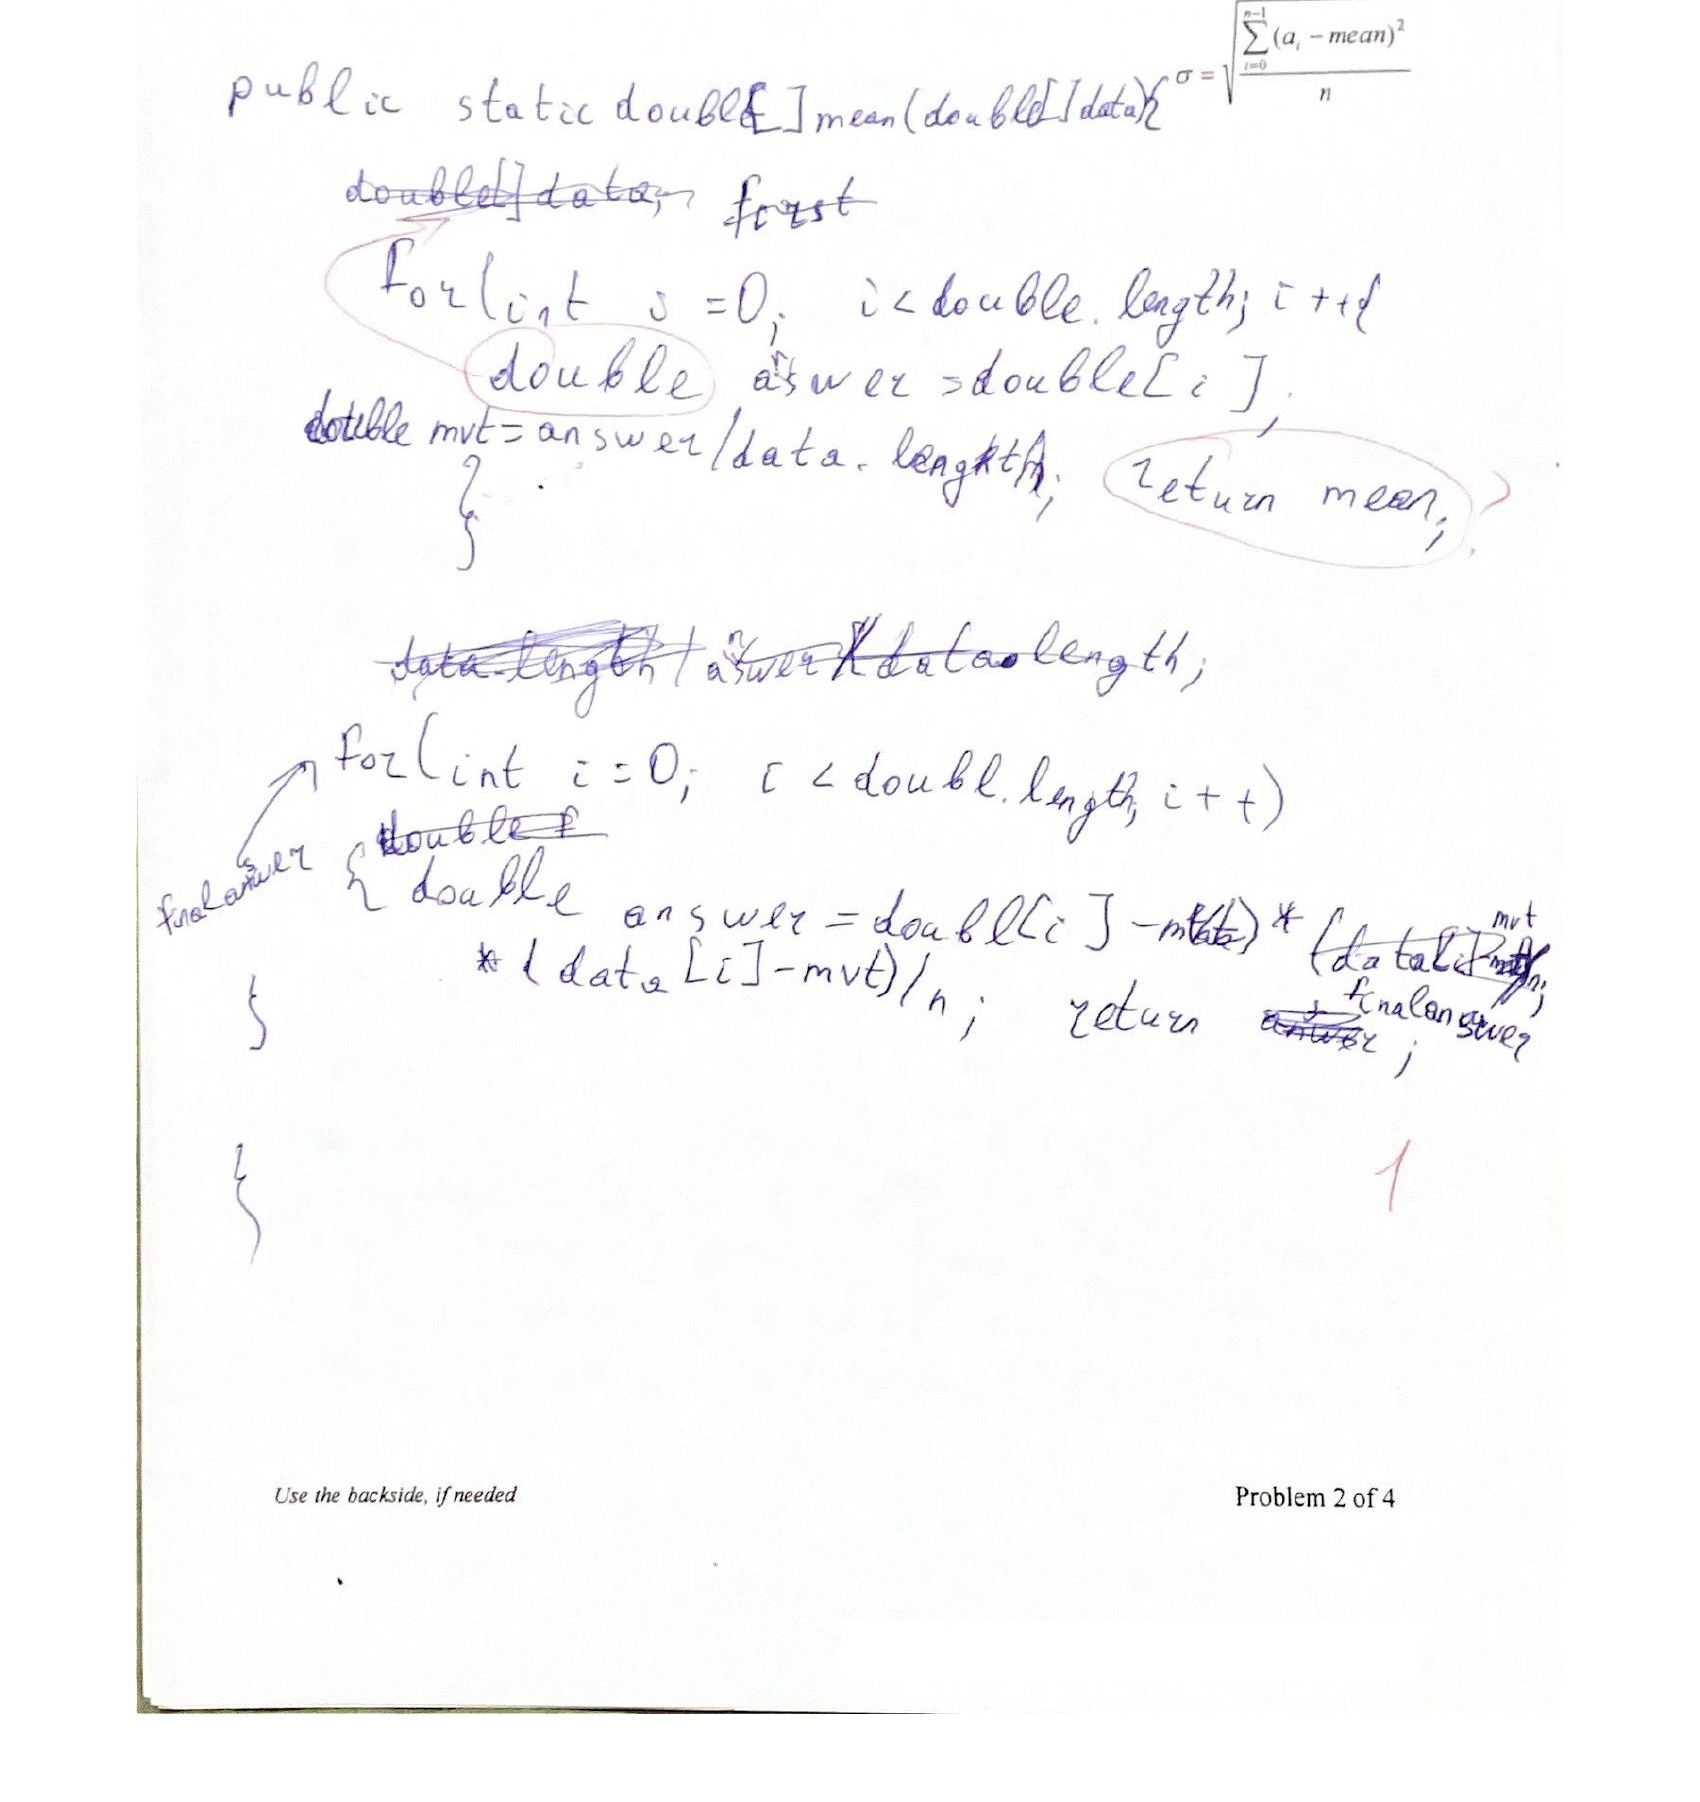 σ = √(∑_{i=0}^{n-1} (a_i − mean)² / n)
public static double[] mean(double[] data){
double[] data; first
for(int i =0; i<double.length; i++{
double answer =double[i];
double mvt = answer/data.length; return mean; ?
}
}
data.length / answer/data.length;
for(int i=0; i <doubl.length; i++)
final answer
double f
{ double answer = doubl[i] -mvt) * (data[i]-mvt
* (data[i]-mvt)/n; return finalanswer;
}
}
1
Use the backside, if needed
Problem 2 of 4